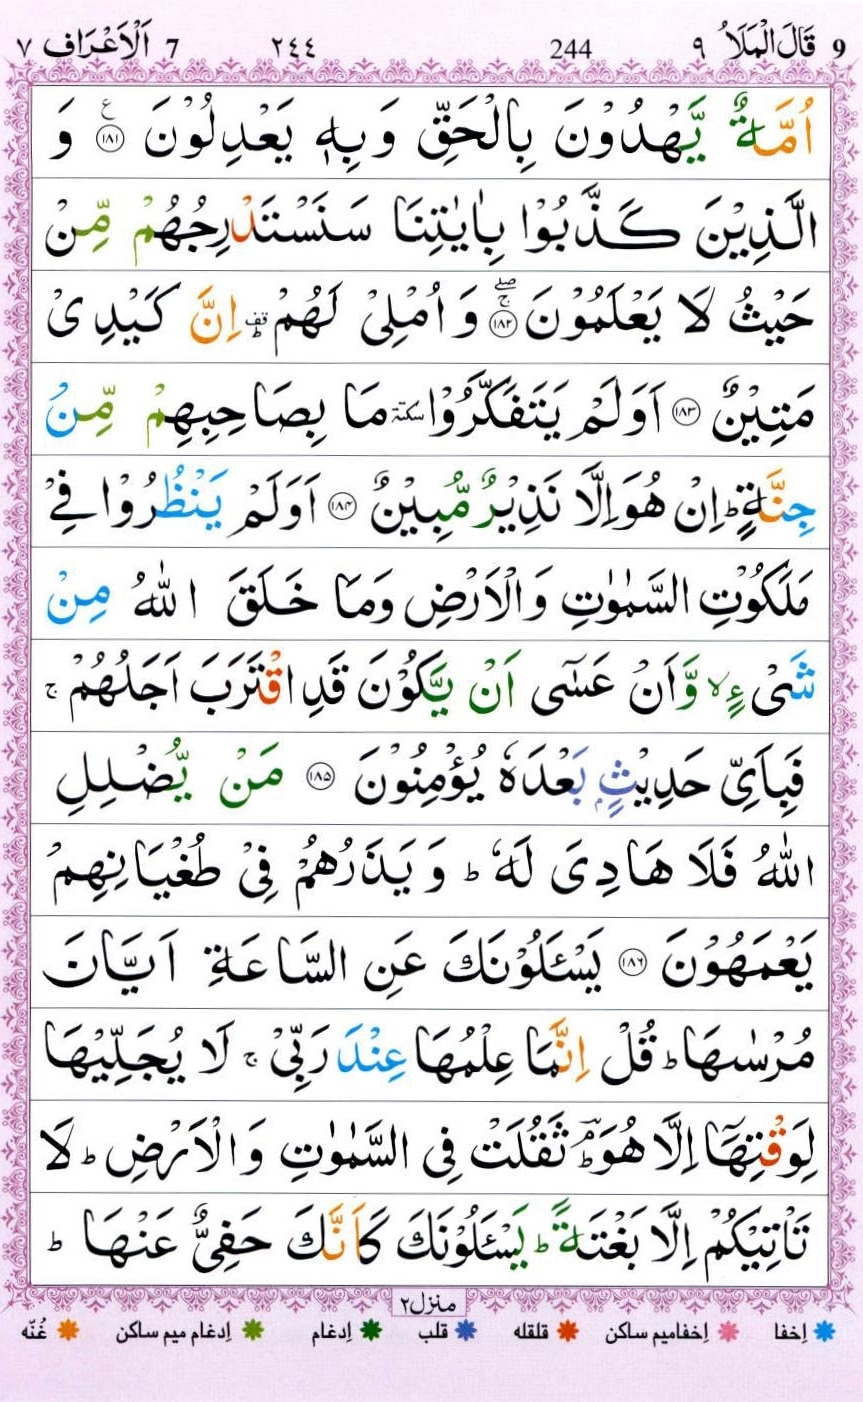 9 قَالَ الْمَلَاُ ۹ 244 ۲٤٤ 7 اَلْاَعْرَاف ۷
اُمَّةٌ يَّهْدُوْنَ بِالْحَقِّ وَبِهٖ يَعْدِلُوْنَ ﴿۱۸۱﴾ ع وَ
الَّذِيْنَ كَذَّبُوْا بِاٰيٰتِنَا سَنَسْتَدْرِجُهُمْ مِّنْ
حَيْثُ لَا يَعْلَمُوْنَ ﴿۱۸۲﴾ۚۖ وَاُمْلِىْ لَهُمْ ؕقف اِنَّ كَيْدِىْ
مَتِيْنٌ ﴿۱۸۳﴾ اَوَلَمْ يَتَفَكَّرُوْا سكتة مَا بِصَاحِبِهِمْ مِّنْ
جِنَّةٍ ؕ اِنْ هُوَ اِلَّا نَذِيْرٌ مُّبِيْنٌ ﴿۱۸۴﴾ اَوَلَمْ يَنْظُرُوْا فِىْ
مَلَكُوْتِ السَّمٰوٰتِ وَالْاَرْضِ وَمَا خَلَقَ اللّٰهُ مِنْ
شَىْءٍ ۙ وَّاَنْ عَسٰٓى اَنْ يَّكُوْنَ قَدِ اقْتَرَبَ اَجَلُهُمْ ۚ
فَبِاَىِّ حَدِيْثٍۢ بَعْدَهٗ يُؤْمِنُوْنَ ﴿۱۸۵﴾ مَنْ يُّضْلِلِ
اللّٰهُ فَلَا هَادِىَ لَهٗ ؕ وَيَذَرُهُمْ فِىْ طُغْيَانِهِمْ
يَعْمَهُوْنَ ﴿۱۸۶﴾ يَسْـَٔلُوْنَكَ عَنِ السَّاعَةِ اَيَّانَ
مُرْسٰىهَا ؕ قُلْ اِنَّمَا عِلْمُهَا عِنْدَ رَبِّىْ ۚ لَا يُجَلِّيْهَا
لِوَقْتِهَاۤ اِلَّا هُوَ ؕۘ ثَقُلَتْ فِى السَّمٰوٰتِ وَالْاَرْضِ ؕ لَا
تَاْتِيْكُمْ اِلَّا بَغْتَةً ؕ يَسْـَٔلُوْنَكَ كَاَنَّكَ حَفِىٌّ عَنْهَا ؕ
منزل۲
اِخفا اِخفامیم ساکن قلقله قلب اِدغام اِدغام میم ساکن غُنّه